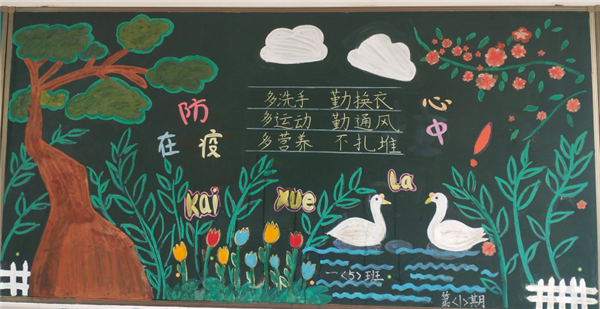 防疫
在心中!
多洗手 勤换衣
多运动 勤通风
多营养 不扎堆
Kai Xue La
一<5>班
第<1>期